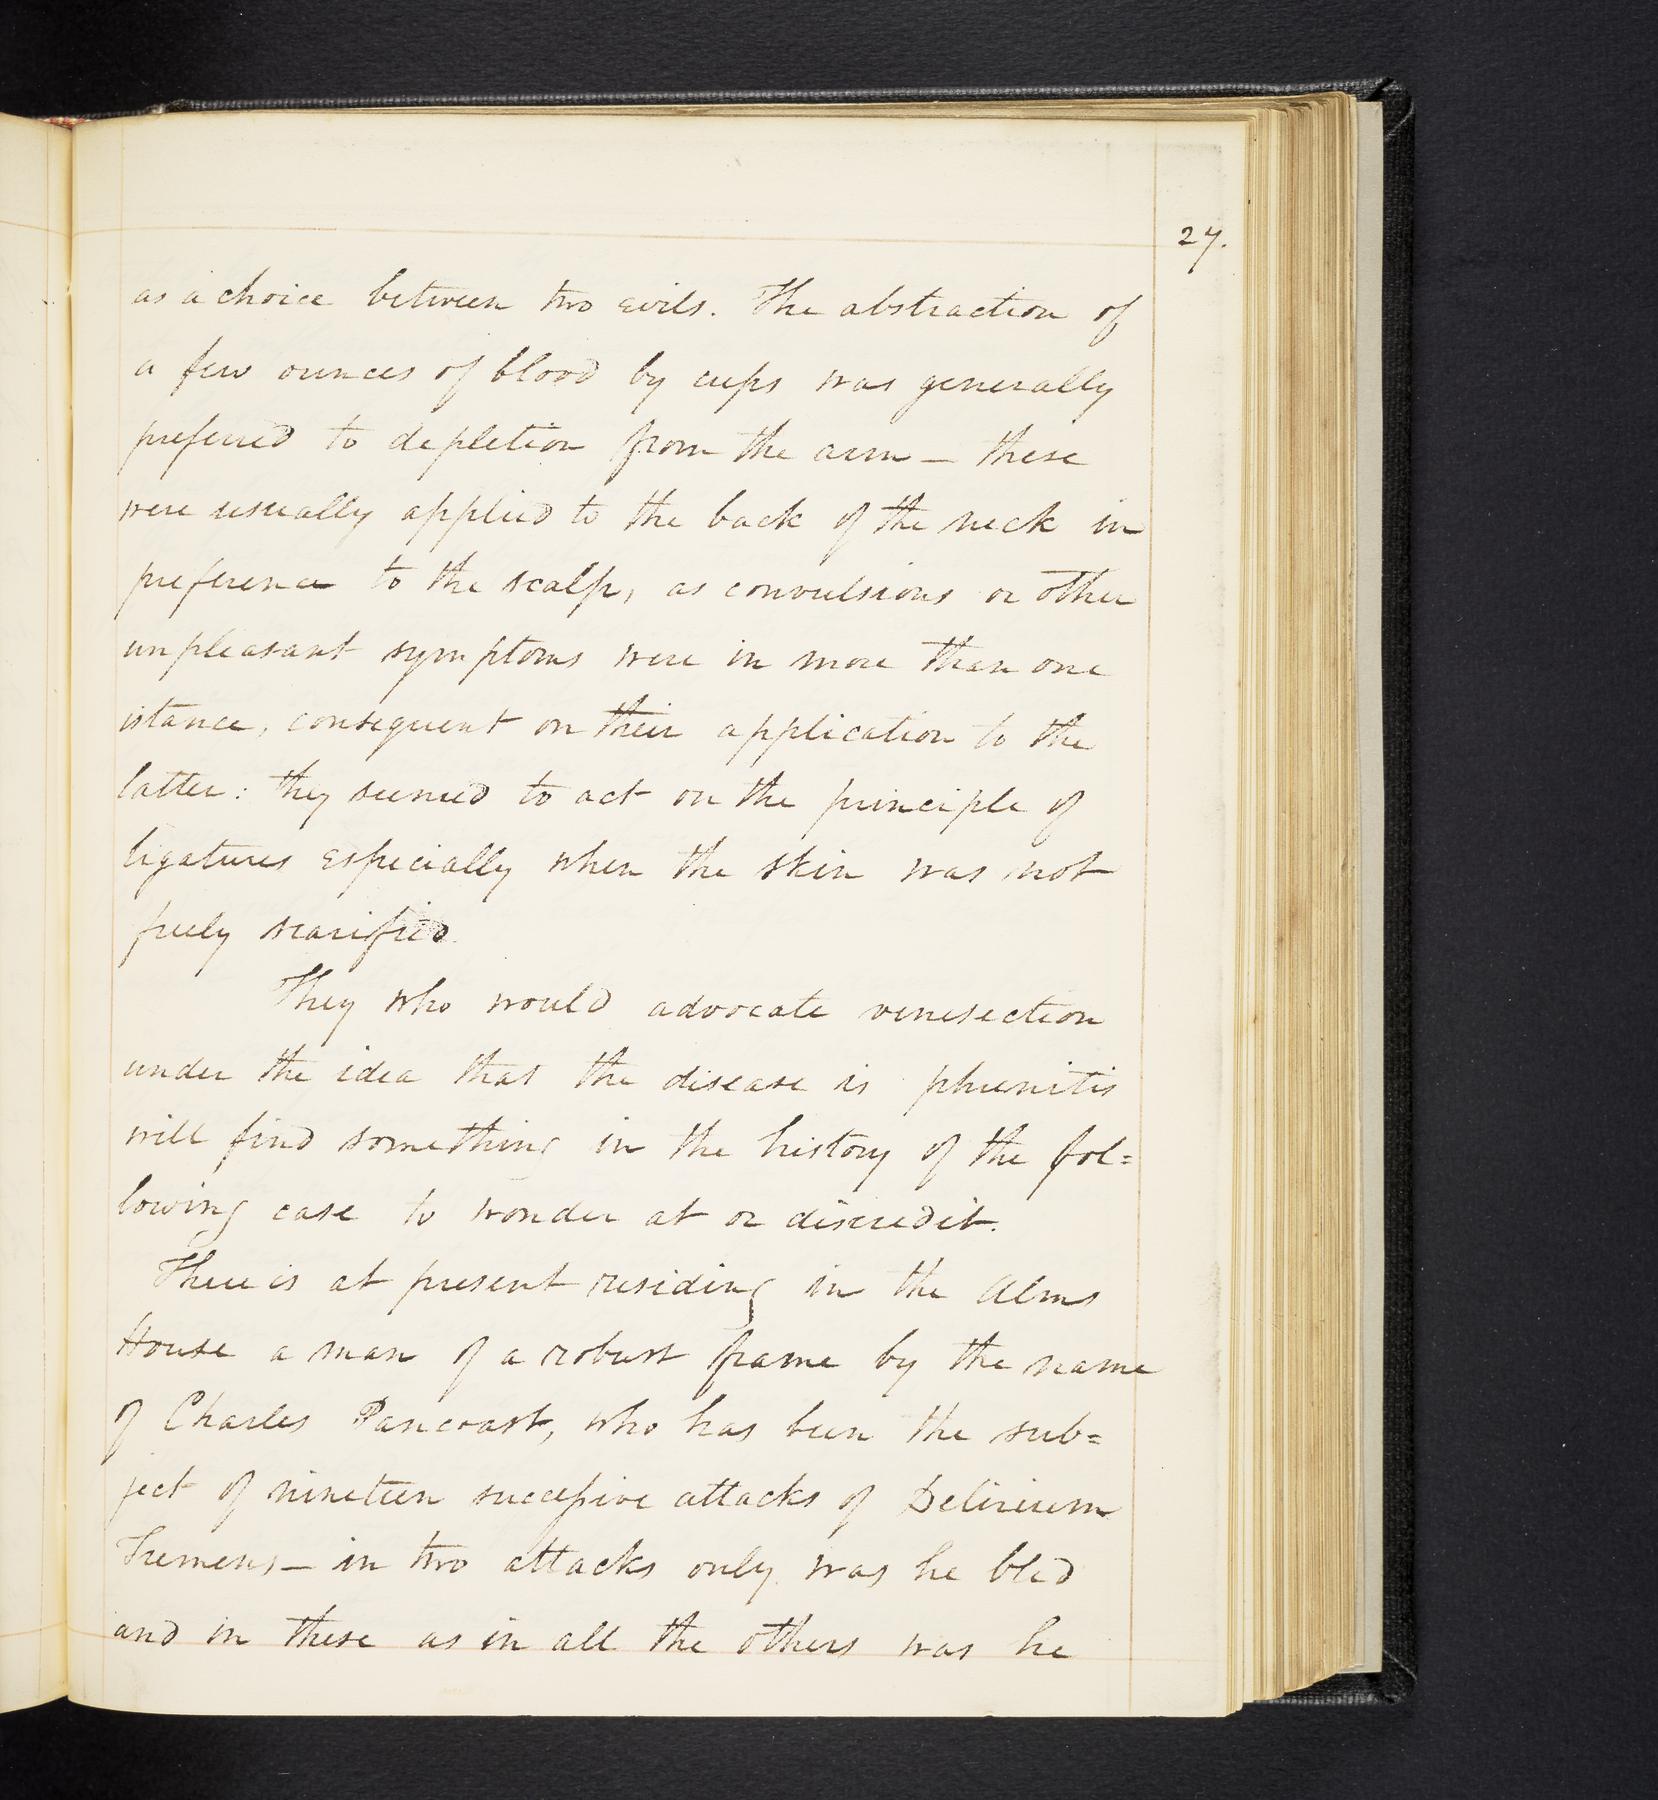 27.
as a choice between two evils. The abstraction of
a few ounces of blood by cups was generally
preferred to depletion from the arm — these
were usually applied to the back of the neck in
preference to the scalp, as convulsions or other
unpleasant symptoms were in more than one
istance, consequent on their application to the
latter: they seemed to act on the principle of
ligatures especially when the skin was not
freely scarified.
They who would advocate venesection
under the idea that the disease is phrenitis
will find something in the history of the fol=
lowing case to wonder at or discredit.
There is at present residing in the Alms
House a man of a robust frame by the name
of Charles Pancoast, who has been the sub=
ject of nineteen successive attacks of Delirium
Tremens — in two attacks only was he bled
and in these as in all the others was he